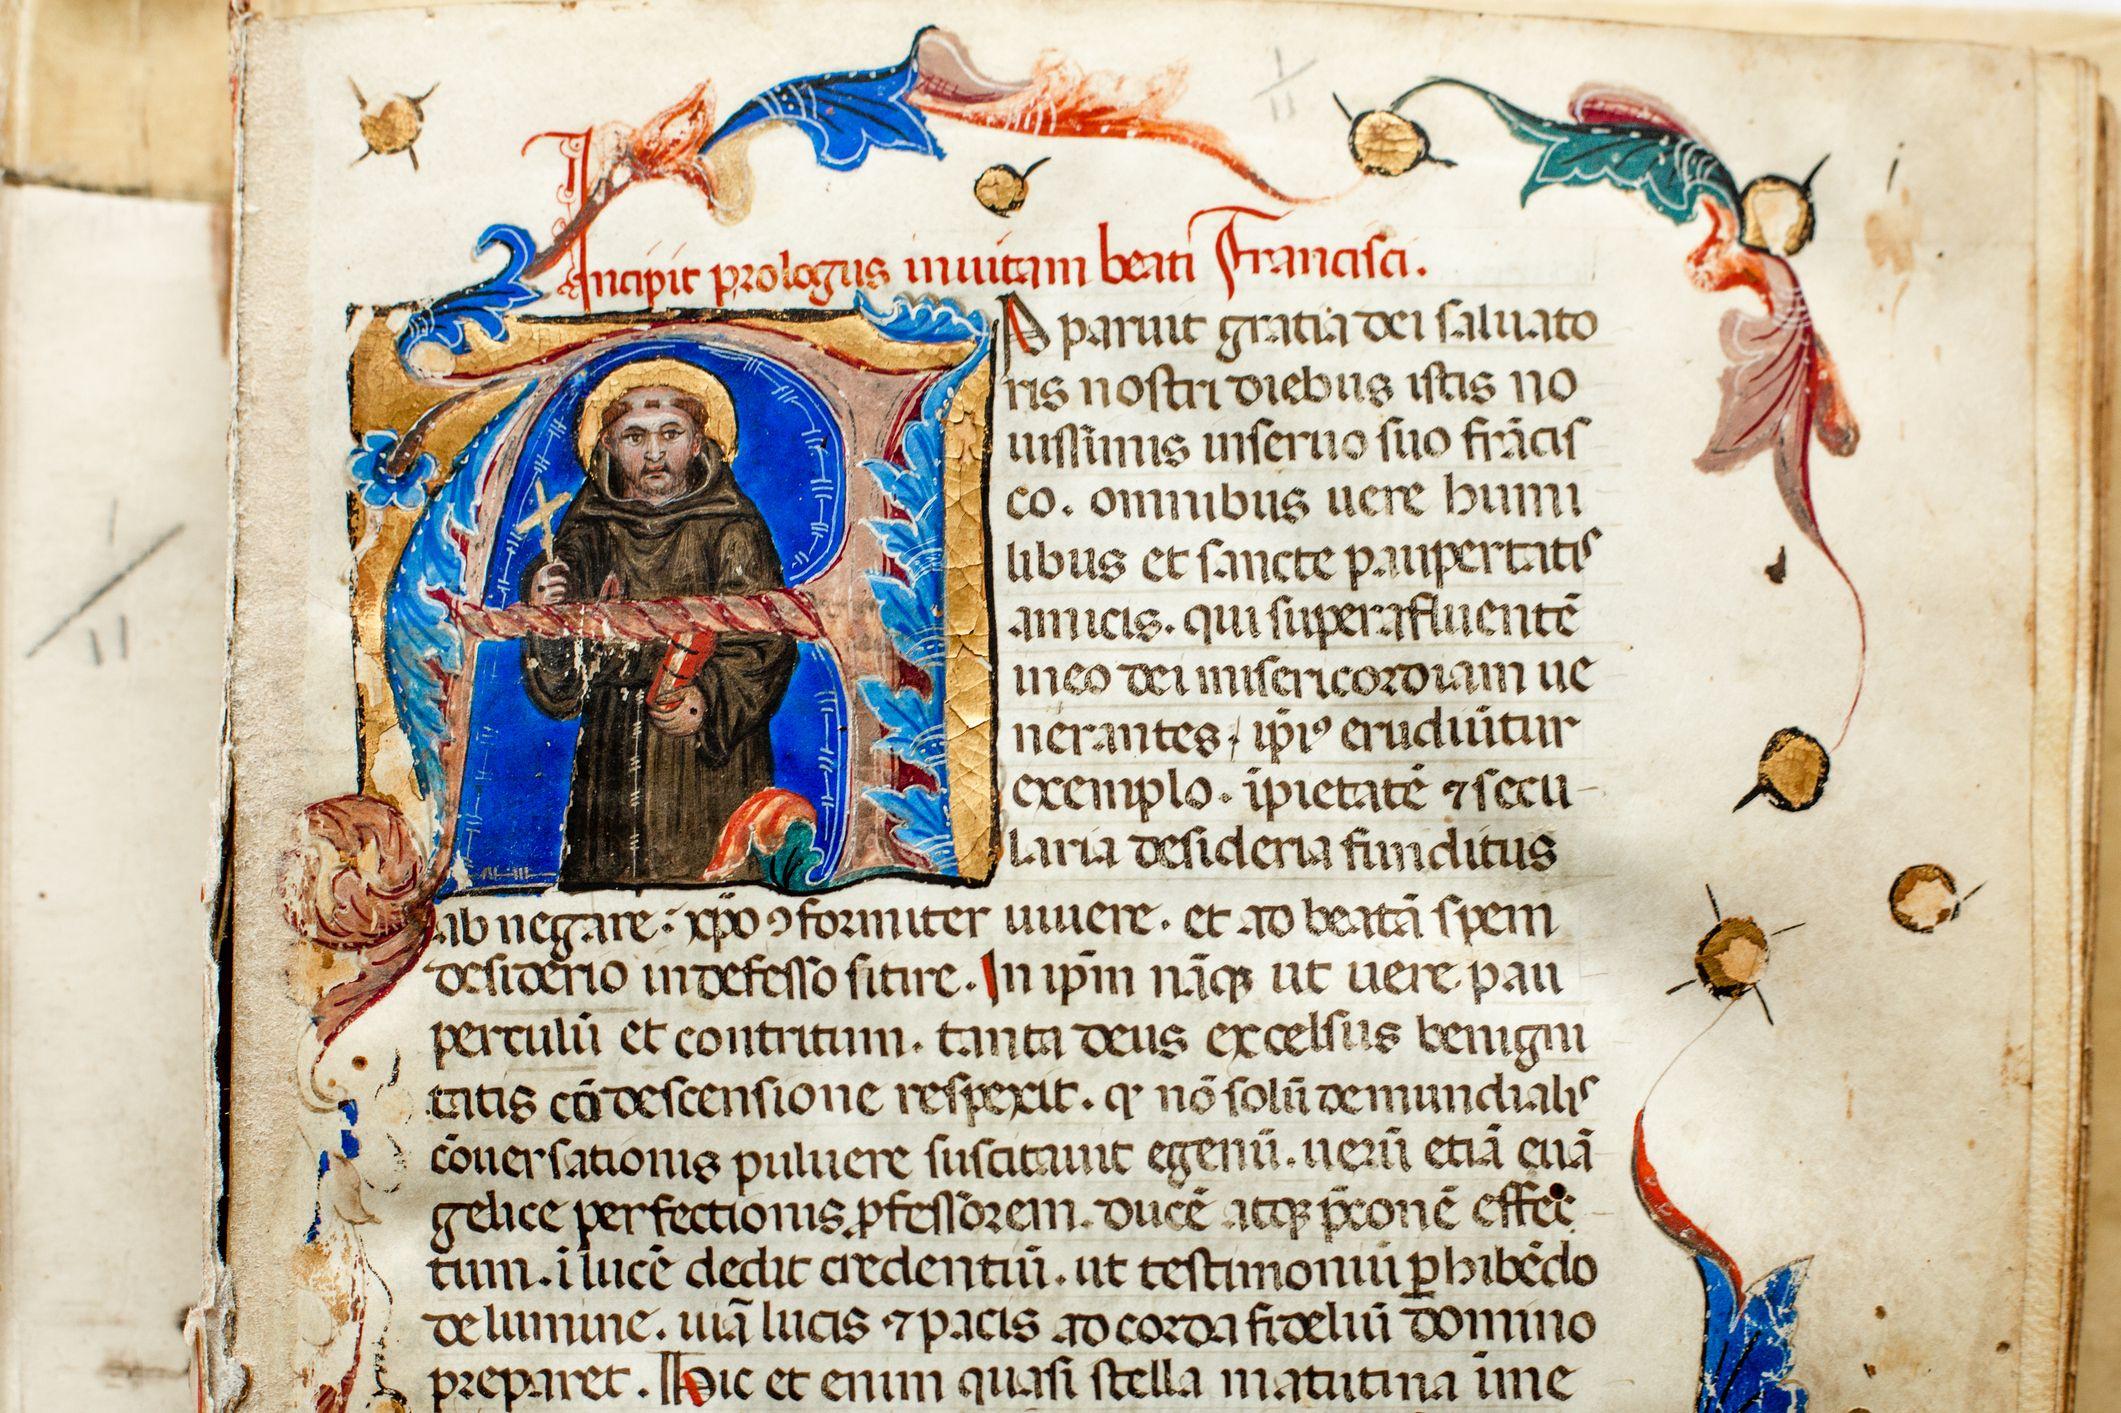 Incipit prologus inuitam beati Francisci.
Aparuit gratia dei saluato
ris nostri diebus istis no
uissimis inseruo suo frācis
co. omnibus uere humi
libus et sancte paupertatis
amicis. qui superafluentē
ineo dei misericordiam ue
nerantes, ip̄iꝰ erudiūtur
exemplo. īpietatē ⁊ secu
laria desideria funditus
abnegare: xp̄o ꝯformiter uiuere. et ad beatā spem
desiderio indefesso sitire. In ip̄m nāqꝫ ut uere pau
perculū et contritum. tanta deus excelsus benigni
tatis cōdescensione respexit. qꝛ nō solū demundialis
cōuersationis puluere suscitauit egenū. uerū etiā euā
gelice perfectionis ꝓfessorem. ducē atqꝫ p̄conē effec
tum. ī lucē dedit credentiū. ut testimoniū ꝑhibēdo
de lumine. uiā lucis ⁊ pacis ad corda fideliū domino
preparet. Hic et enim quasi stella matutina īme